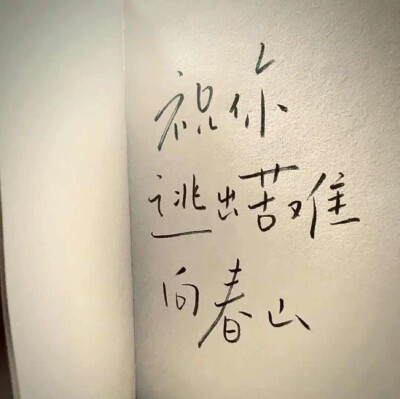 祝你
逃出苦难
向春山